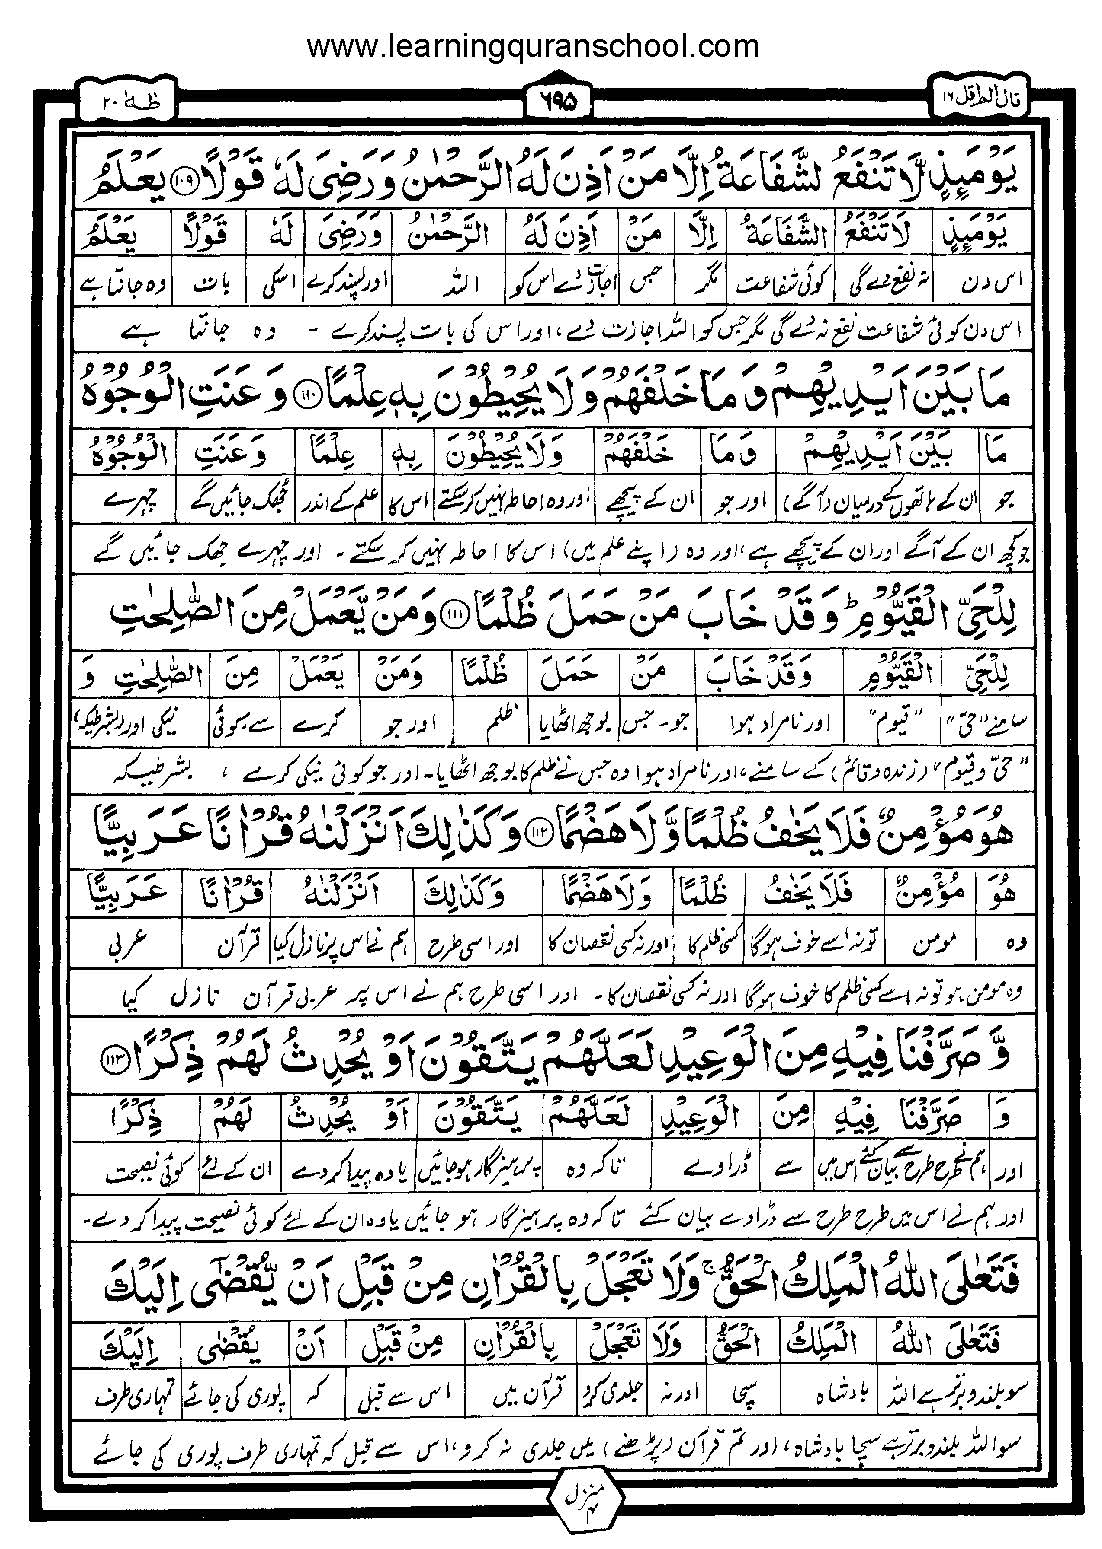 www.learningquranschool.com
قال الم اقل ١٦
٦٩۵
طٰهٰ ٢٠
يَوْمَئِذٍ لَّا تَنْفَعُ الشَّفَاعَةُ اِلَّا مَنْ اَذِنَ لَهُ الرَّحْمٰنُ وَرَضِىَ لَهٗ قَوْلًا ١٠٩ يَعْلَمُ
يَوْمَئِذٍ لَا تَنْفَعُ الشَّفَاعَةُ اِلَّا مَنْ اَذِنَ لَهُ الرَّحْمٰنُ وَرَضِىَ لَهٗ قَوْلًا يَعْلَمُ
اس دن نہ نفع دے گی کوئی شفاعت مگر جس اجازت دے اس کو اللہ اور پسند کرے اسکی بات وہ جانتا ہے
اس دن کوئی شفاعت نفع نہ دے گی مگر جس کو اللہ اجازت دے، اور اس کی بات پسند کرے ۔ وہ جانتا ہے
مَا بَيْنَ اَيْدِيْهِمْ وَمَا خَلْفَهُمْ وَلَا يُحِيْطُوْنَ بِهٖ عِلْمًا ١١٠ وَعَنَتِ الْوُجُوْهُ
مَا بَيْنَ اَيْدِيْهِمْ وَمَا خَلْفَهُمْ وَلَا يُحِيْطُوْنَ بِهٖ عِلْمًا وَعَنَتِ الْوُجُوْهُ
جو ان کے ہاتھوں کے درمیان (آگے) اور جو ان کے پیچھے اور وہ احاطہ نہیں کرسکتے اس کا علم کے اندر جھک جائیں گے چہرے
جو کچھ ان کے آگے اور ان کے پیچھے ہے، اور وہ (اپنے علم میں) اس کا احاطہ نہیں کر سکتے ۔ اور چہرے جھک جائیں گے
لِلْحَيِّ الْقَيُّوْمِ ؕ وَقَدْ خَابَ مَنْ حَمَلَ ظُلْمًا ١١١ وَمَنْ يَّعْمَلْ مِنَ الصّٰلِحٰتِ
لِلْحَيِّ الْقَيُّوْمِ وَقَدْ خَابَ مَنْ حَمَلَ ظُلْمًا وَمَنْ يَعْمَلْ مِنَ الصّٰلِحٰتِ وَ
سامنے "حیّ" "قیوم" اور نامراد ہوا جو۔جس بوجھ اٹھایا ظلم اور جو کرے سے۔کوئی نیکی اور (بشرطیکہ)
"حیّ و قیوم" (زندہ و قائم) کے سامنے، اور نامراد ہوا وہ جس نے ظلم کا بوجھ اٹھایا۔ اور جو کوئی نیکی کرے ، بشرطیکہ
هُوَ مُؤْمِنٌ فَلَا يَخٰفُ ظُلْمًا وَّلَا هَضْمًا ١١٢ وَكَذٰلِكَ اَنْزَلْنٰهُ قُرْاٰنًا عَرَبِيًّا
هُوَ مُؤْمِنٌ فَلَا يَخٰفُ ظُلْمًا وَلَا هَضْمًا وَكَذٰلِكَ اَنْزَلْنٰهُ قُرْاٰنًا عَرَبِيًّا
وہ مومن تو نہ اسے خوف ہوگا کسی ظلم کا اور نہ کسی نقصان کا اور اسی طرح ہم نے اس پر نازل کیا قرآن عربی
وہ مومن ہو تو نہ اسے کسی ظلم کا خوف ہوگا اور نہ کسی نقصان کا۔ اور اسی طرح ہم نے اس پر عربی قرآن نازل کیا
وَّصَرَّفْنَا فِيْهِ مِنَ الْوَعِيْدِ لَعَلَّهُمْ يَتَّقُوْنَ اَوْ يُحْدِثُ لَهُمْ ذِكْرًا ١١٣
وَ صَرَّفْنَا فِيْهِ مِنَ الْوَعِيْدِ لَعَلَّهُمْ يَتَّقُوْنَ اَوْ يُحْدِثُ لَهُمْ ذِكْرًا
اور ہم نے طرح طرح سے بیان کئے اس میں سے ڈراوے تاکہ وہ پرہیزگار ہوجائیں یا وہ پیدا کردے ان کے لئے کوئی نصیحت
اور ہم نے اس میں طرح طرح سے ڈراوے بیان کئے تاکہ وہ پرہیزگار ہو جائیں یا وہ ان کے لئے کوئی نصیحت پیدا کر دے۔
فَتَعٰلَى اللّٰهُ الْمَلِكُ الْحَقُّ ۚ وَلَا تَعْجَلْ بِالْقُرْاٰنِ مِنْ قَبْلِ اَنْ يُّقْضٰٓى اِلَيْكَ
فَتَعٰلَى اللّٰهُ الْمَلِكُ الْحَقُّ وَلَا تَعْجَلْ بِالْقُرْاٰنِ مِنْ قَبْلِ اَنْ يُقْضٰٓى اِلَيْكَ
سو بلند و برتر ہے اللہ بادشاہ سچا اور نہ جلدی کرو قرآن میں اس سے قبل کہ پوری کی جائے تمہاری طرف
سو اللہ بلند و برتر ہے سچا بادشاہ، اور تم قرآن (پڑھنے) میں جلدی نہ کرو، اس سے قبل کہ تمہاری طرف پوری کی جائے
منزل ۴